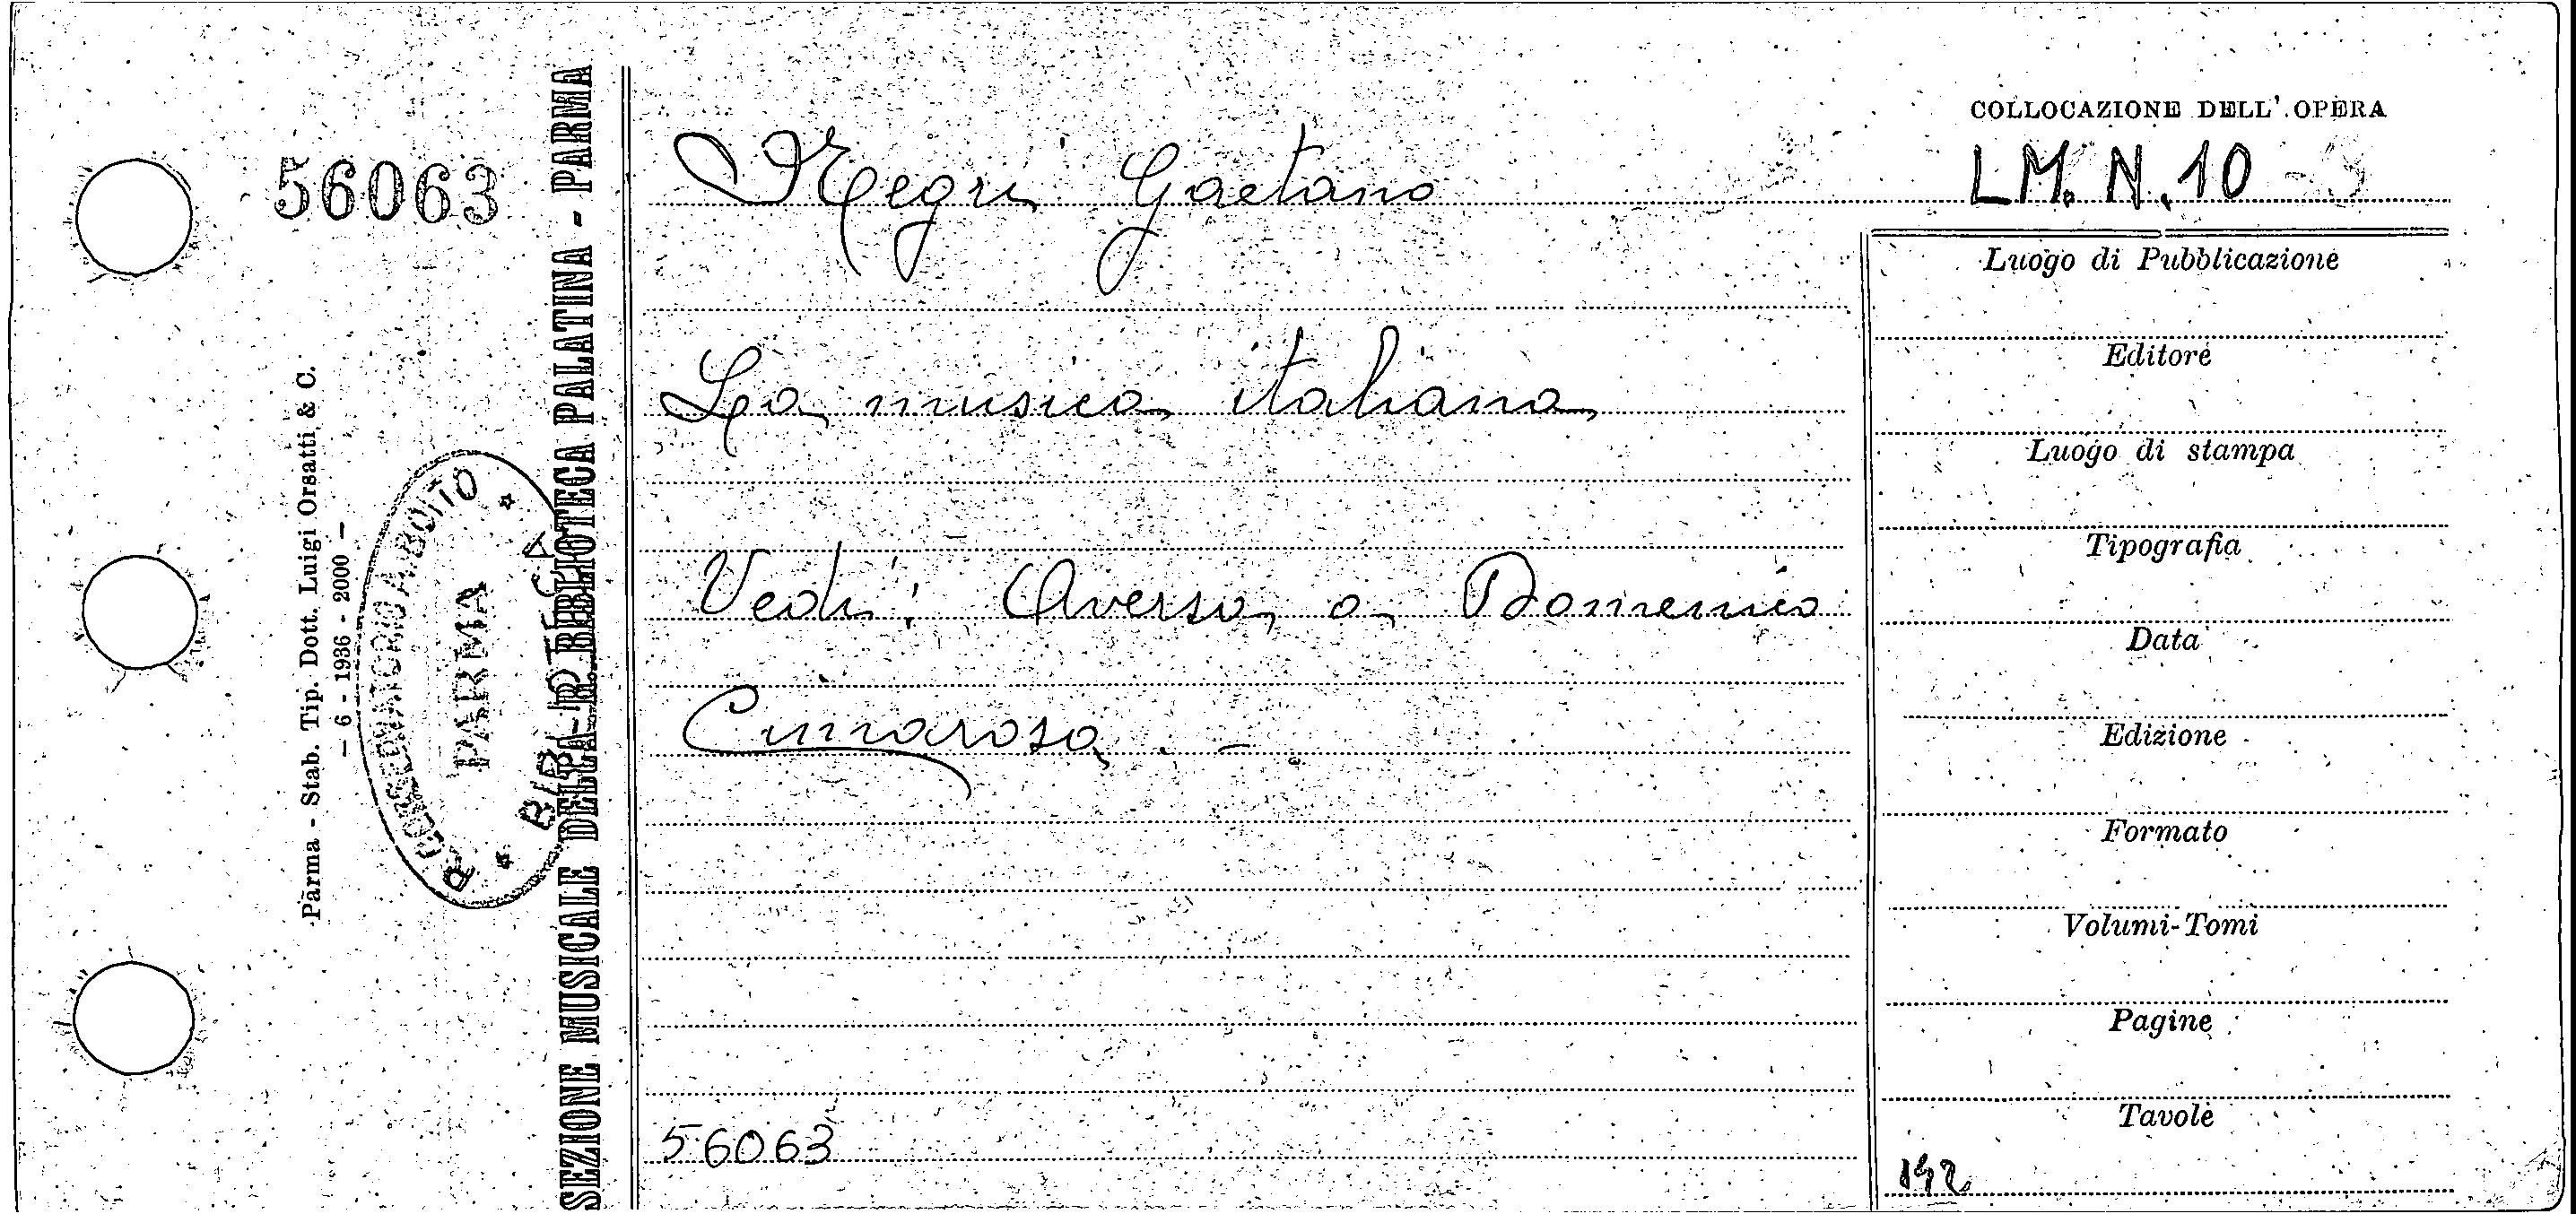 56063
Parma - Stab. Tip. Dott. Luigi Orsatti & C.
— 6 - 1936 - 2000 —
R. CONSERVATORIO A. BOITO
PARMA
SEZIONE MUSICALE DELLA R. BIBLIOTECA PALATINA - PARMA
Negri Gaetano
La musica italiana
Vedi: Aversa a Domenico
Cimarosa. -
56063
COLLOCAZIONE DELL' OPERA
LM. N. 10
Luogo di Pubblicazione
Editore
Luogo di stampa
Tipografia
Data
Edizione
Formato
Volumi-Tomi
Pagine
Tavole
142